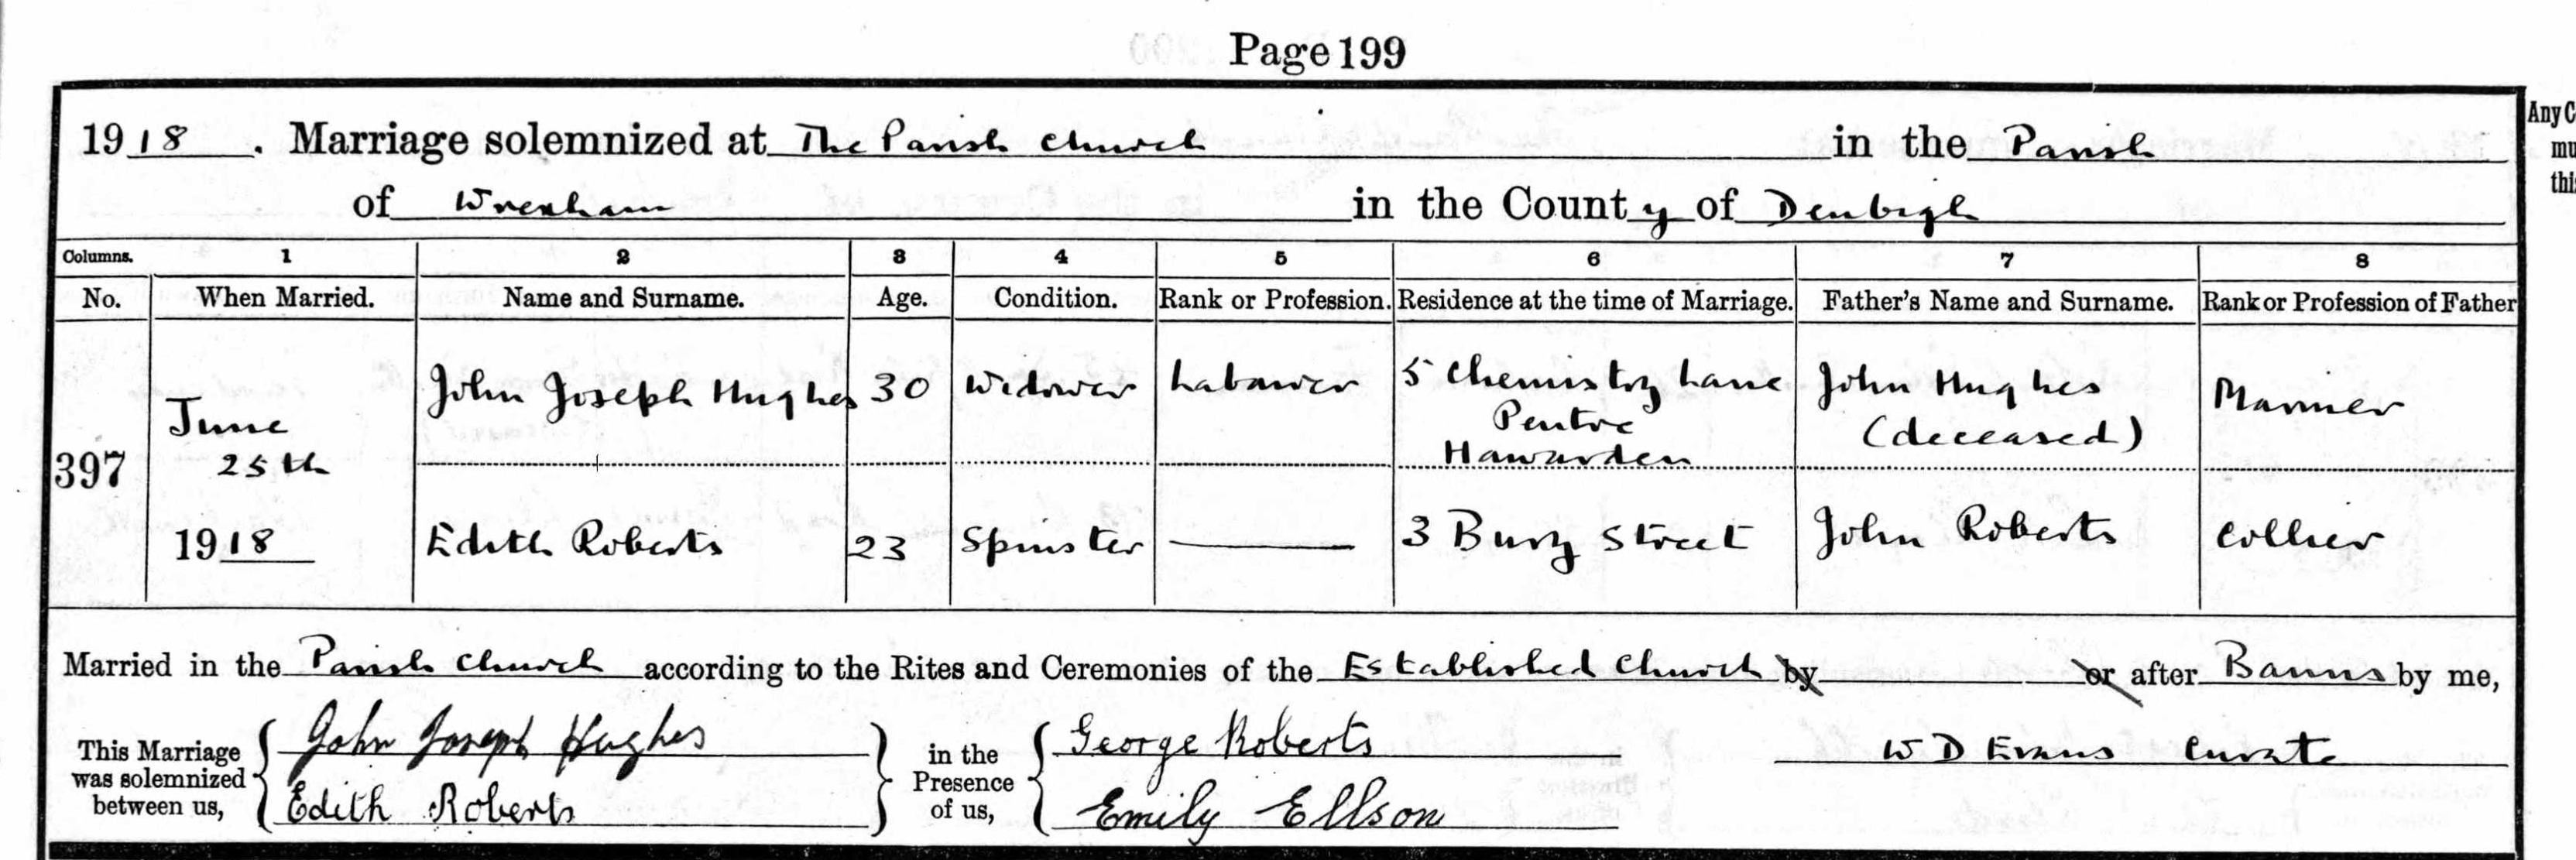 Page 199
1918. Marriage solemnized at The Parish Church in the Parish
of Wrexham in the County of Denbigh
Any C
mu
thi
Columns. 1 2 3 4 5 6 7 8
No. When Married. Name and Surname. Age. Condition. Rank or Profession. Residence at the time of Marriage. Father's Name and Surname. Rank or Profession of Father
397
June
25th
1918
John Joseph Hughes 30 Widower Labourer 5 Chemistry Lane
Pentre
Hawarden
John Hughes
(deceased)
Mariner
Edith Roberts 23 Spinster 3 Bury Street John Roberts Collier
Married in the Parish Church according to the Rites and Ceremonies of the Established Church by or after Banns by me,
This Marriage
was solemnized
between us,
John Joseph Hughes
Edith Roberts
in the
Presence
of us,
George Roberts
Emily Ellson
W D Evans Curate